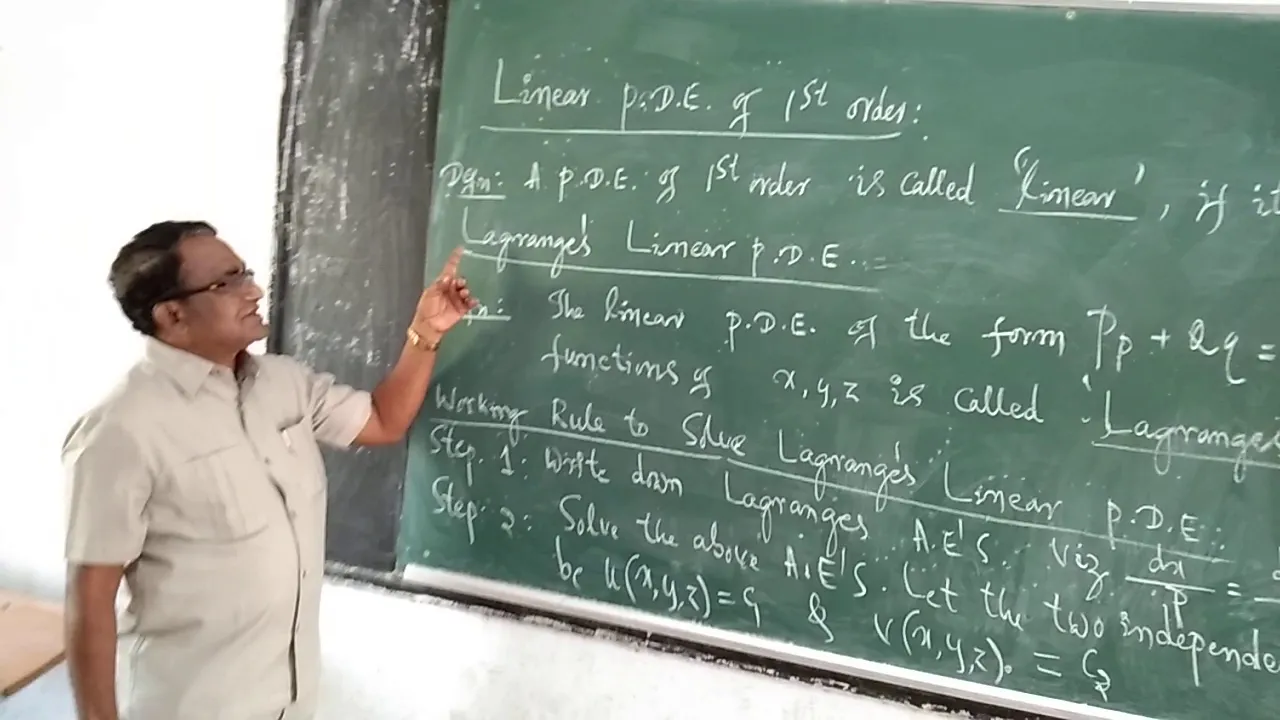 Linear P.D.E. of 1st order:
Defn: A P.D.E. of 1st order is called 'linear', if it
Lagrange's Linear P.D.E.:-
The linear P.D.E. of the form Pp + Qq =
functions of x, y, z is called 'Lagranges
Working Rule to Solve Lagrange's Linear P.D.E.:
Step. 1: Write down Lagranges A.E'S. viz dx/P =
Step. 2: Solve the above A.E'S. Let the two independe
be u(x,y,z) = C1 & v(x,y,z) = C2